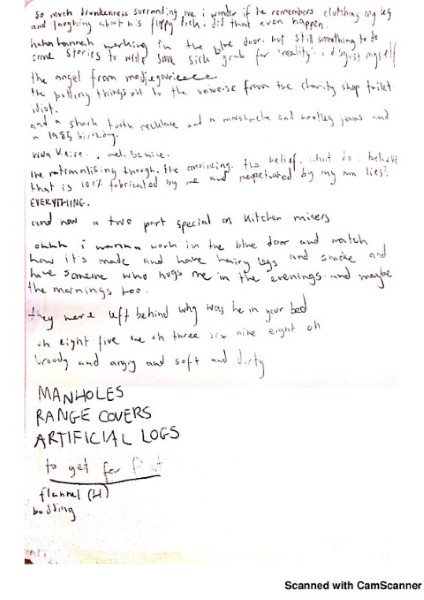 so much drunkenness surrounding me i wonder if he remembers clutching my leg
and laughing about his floppy dick. did that even happen.
haha hannah working in the blue door. but still something to do
some stories to write some sick grab for 'reality' i disgust myself
the angel from
the putting things out to the universe from the charity shop toilet
idiot.
and a shark tooth necklace and a moustache and bootleg jeans and
a 1985 birthday.
the rationalising though, the convincing. the belief. what do i believe
that is 100% fabricated by me and perpetuated by my own lies?
EVERYTHING.
and now a two part special on kitchen mixers
ohhh i wanna work in the blue door and watch
how it's made and have hairy legs and smoke and
have someone who hugs me in the evenings and maybe
the mornings too.
they were left behind why was he in your bed
oh eight five one oh three six nine eight oh
broody and angry and soft and dirty
MANHOLES
RANGE COVERS
ARTIFICIAL LOGS
to get for
flannel (H)
bedding
Scanned with CamScanner